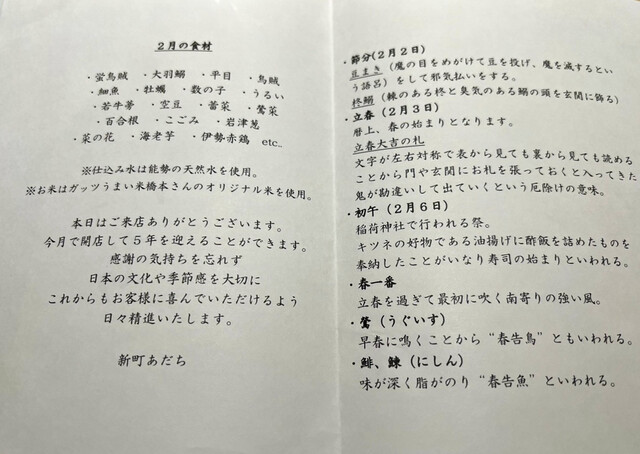 2月の食材
・蛍烏賊 ・大羽鰯 ・平目 ・烏賊
・細魚 ・牡蠣 ・数の子 ・うるい
・若牛蒡 ・空豆 ・蕾菜 ・鶯菜
・百合根 ・こごみ ・岩津葱
・菜の花 ・海老芋 ・伊勢赤鶏 etc..
※仕込み水は能勢の天然水を使用。
※お米はガッツうまい米橋本さんのオリジナル米を使用。
本日はご来店ありがとうございます。
今月で開店して5年を迎えることができます。
感謝の気持ちを忘れず
日本の文化や季節感を大切に
これからもお客様に喜んでいただけるよう
日々精進いたします。
新町あだち
・節分(2月2日)
豆まき(魔の目をめがけて豆を投げ、魔を滅するとい
う語呂)をして邪気払いをする。
柊鰯(棘のある柊と臭気のある鰯の頭を玄関に飾る)
・立春(2月3日)
暦上、春の始まりとなります。
立春大吉の札
文字が左右対称で表から見ても裏から見ても読める
ことから門や玄関にお札を張っておくと入ってきた
鬼が勘違いして出ていくという厄除けの意味。
・初午(2月6日)
稲荷神社で行われる祭。
キツネの好物である油揚げに酢飯を詰めたものを
奉納したことがいなり寿司の始まりといわれる。
・春一番
立春を過ぎて最初に吹く南寄りの強い風。
・鶯(うぐいす)
早春に鳴くことから“春告鳥”ともいわれる。
・鯡、鰊(にしん)
味が深く脂がのり“春告魚”といわれる。